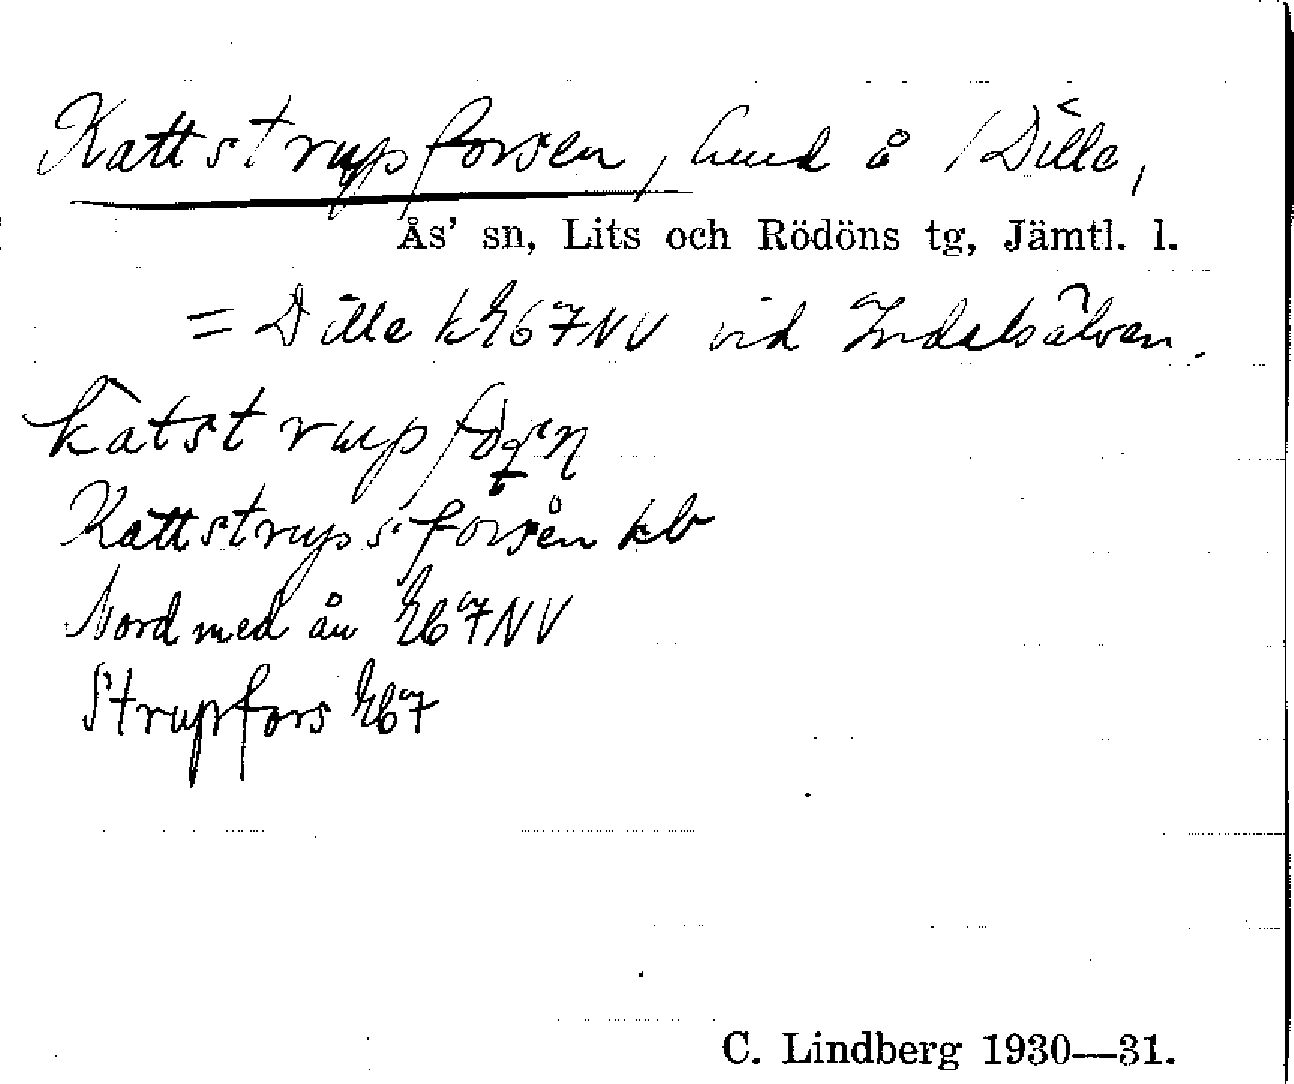 Kattstrupforsen, hmd å /Dille,
Ås' sn, Lits och Rödöns tg, Jämtl. l.
= Dille NV vid Indalsälven.
Kattstrupsforsen kb
Nord med ån NV
Strupfors
C. Lindberg 1930—31.